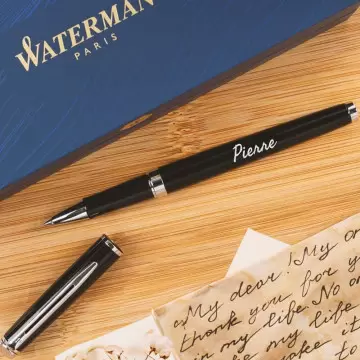 WATERMAN
PARIS
Pierre
My dear! My o
thank you for y
in my life No o
in my life
make it
take